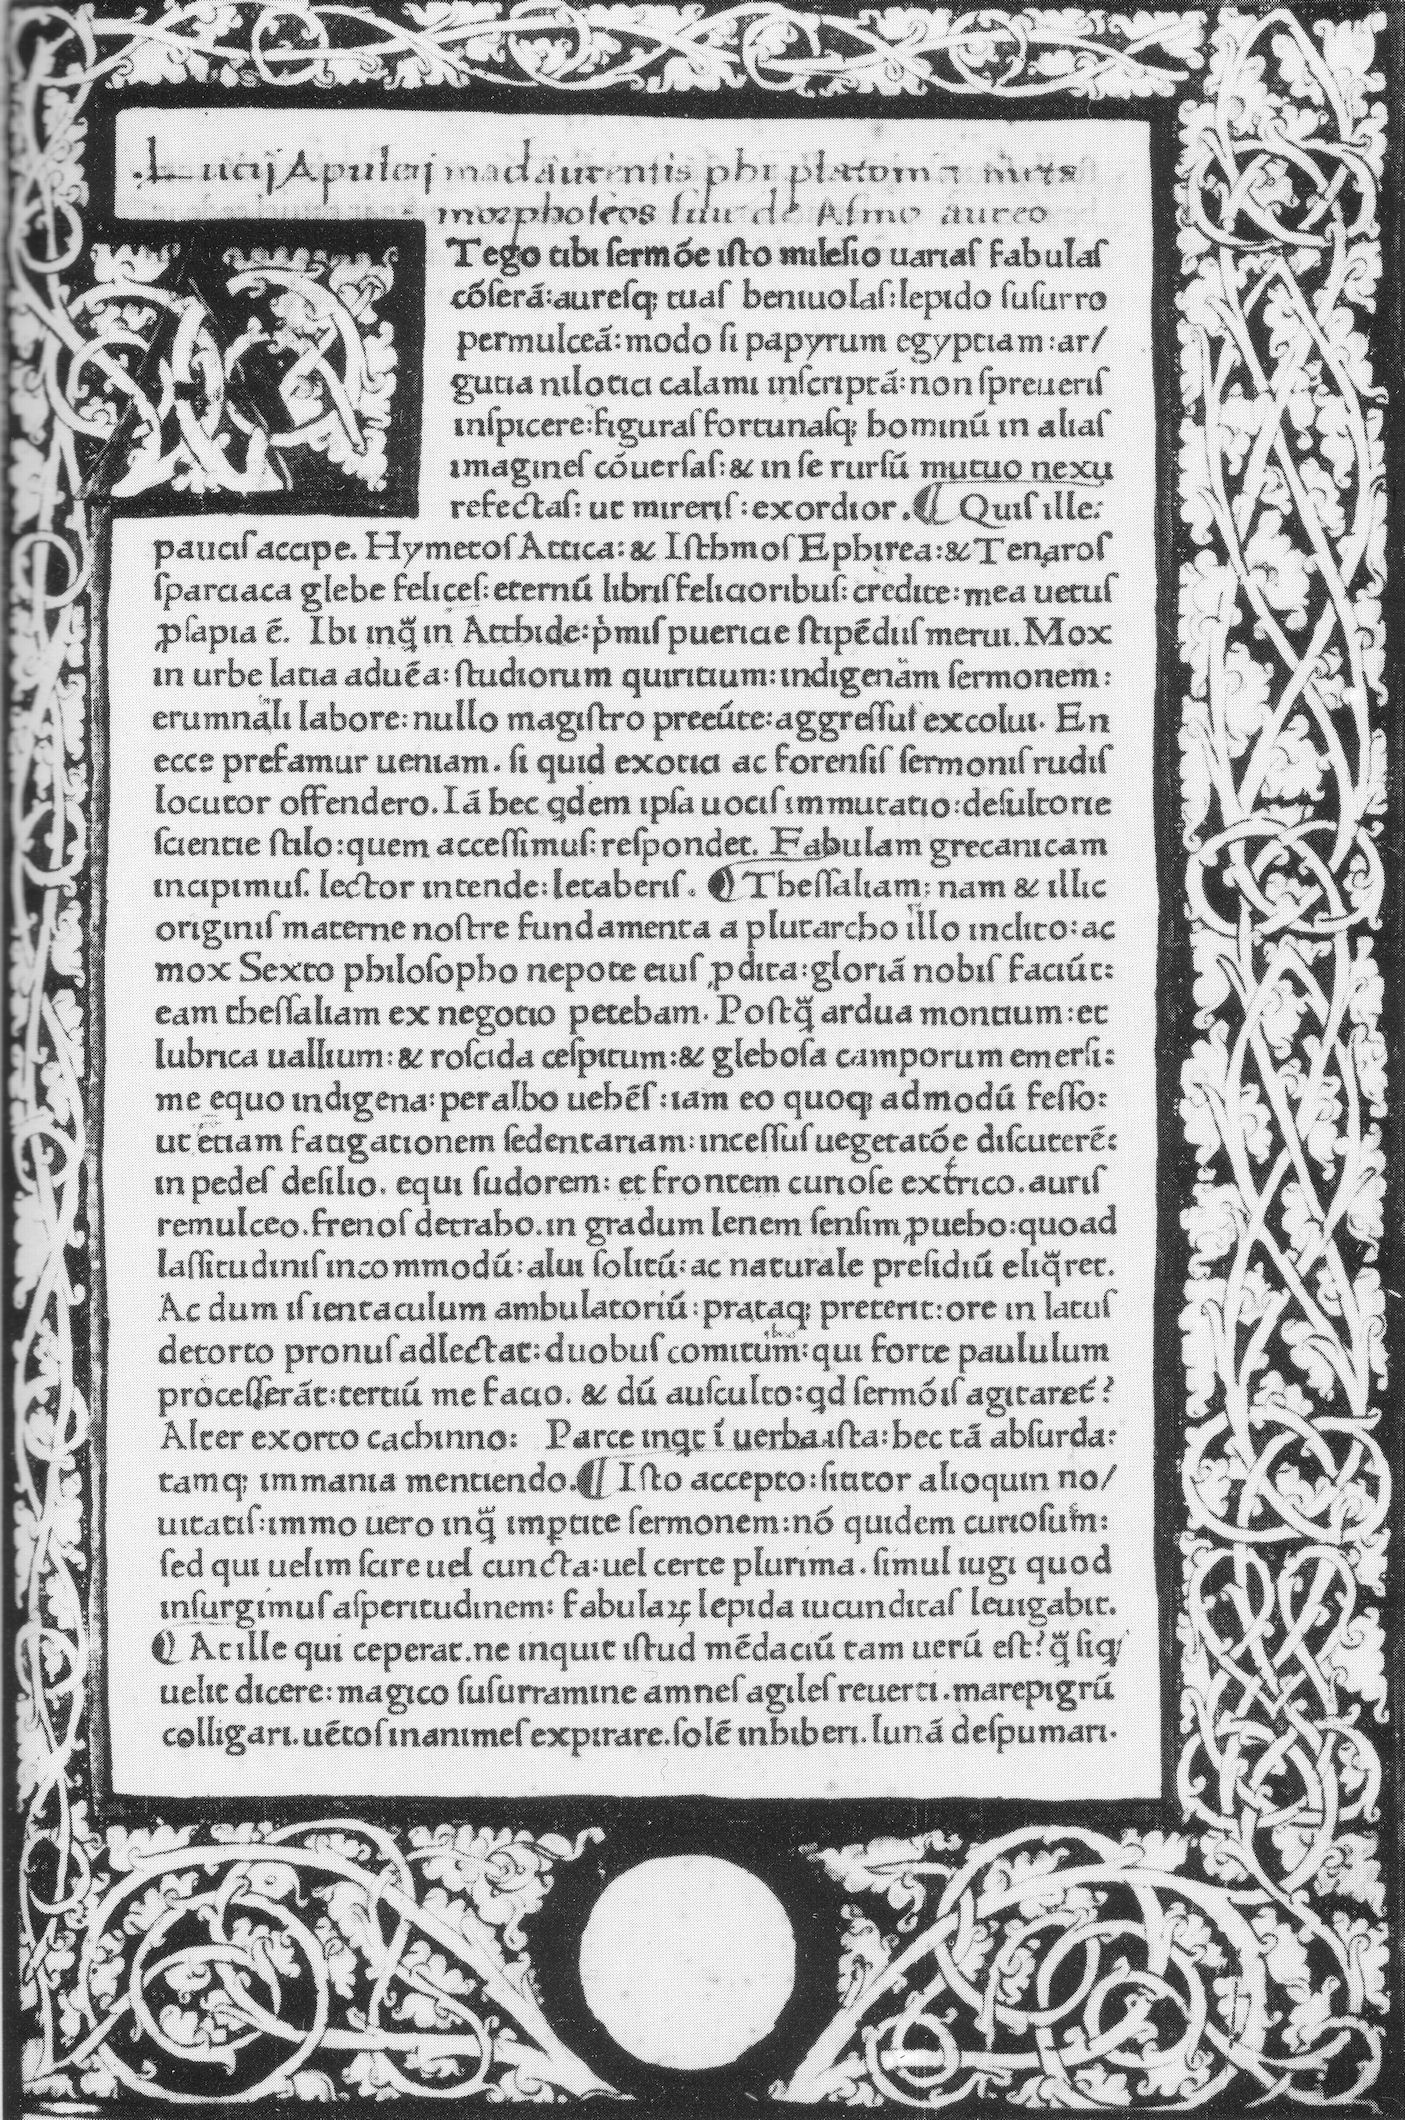 .Lucij Apuleij madaurensis phi platonici meta
morphoseos siue de Asino aureo
AT ego tibi sermõe isto milesio uarias fabulas
cõserã: auresq; tuas beniuolas: lepido susurro
permulceã: modo si papyrum egyptiam: ar/
gutia nilotici calami inscriptã: non spreueris
inspicere: figuras fortunasq; hominũ in alias
imagines cõuersas: & in se rursũ mutuo nexu
refectas: ut mireris: exordior. ¶ Quis ille:
paucis accipe. Hymetos Attica: & Isthmos Ephirea: & Tenaros
sparciaca glebe felices: eternũ libris felicioribus: credite: mea uetus
ꝓsapia ẽ. Ibi inq̃ in Atthide: p̍mis puericie stipẽdiis merui. Mox
in urbe latia aduẽa: studiorum quiritium: indigenam sermonem:
erumnali labore: nullo magistro preeũte: aggressus excolui. En
ecce prefamur ueniam. si quid exotici ac forensis sermonis rudis
locutor offendero. Iã hec qdem ipsa uocis immutatio: desultorie
scientie stilo: quem accessimus: respondet. Fabulam grecanicam
incipimus. lector intende: letaberis. ¶ Thessaliam: nam & illic
originis materne nostre fundamenta a plutarcho illo inclito: ac
mox Sexto philosopho nepote eius ꝓdita: gloriã nobis faciũt:
eam thessaliam ex negotio petebam. Postq̃ ardua montium: et
lubrica uallium: & roscida cespitum: & glebosa camporum emersi:
me equo indigena: peralbo uehẽs: iam eo quoq; admodũ fesso:
ut etiam fatigationem sedentariam: incessus uegetatõe discuterẽ:
in pedes desilio. equi sudorem: et frontem curiose extrico. auris
remulceo. frenos detraho. in gradum lenem sensim ꝓuebo: quoad
lassitudinis incommodũ: alui solitũ: ac naturale presidiũ eliq̃ret.
Ac dum is ientaculum ambulatoriũ: prataq; preterit: ore in latus
detorto pronus adlectat: duobus comitum: qui forte paululum
processerãt: tertiũ me facio. & dũ ausculto: qd sermõis agitaret?
Alter exorto cachinno: Parce inqt ĩ uerba ista: hec tã absurda:
tamq; immania mentiendo. ¶ Isto accepto: sititor alioquin no/
uitatis: immo uero inq̃ imptite sermonem: nõ quidem curiosum:
sed qui uelim scire uel cuncta: uel certe plurima. simul iugi quod
insurgimus asperitudinem: fabulaꝝ lepida iucunditas leuigabit.
¶ At ille qui ceperat. ne inquit istud mẽdaciũ tam uerũ est? q̃ siq/
uelit dicere: magico susurramine amnes agiles reuerti. mare pigrũ
colligari. uẽtos inanimes expirare. solẽ inhiberi. lunã despumari.